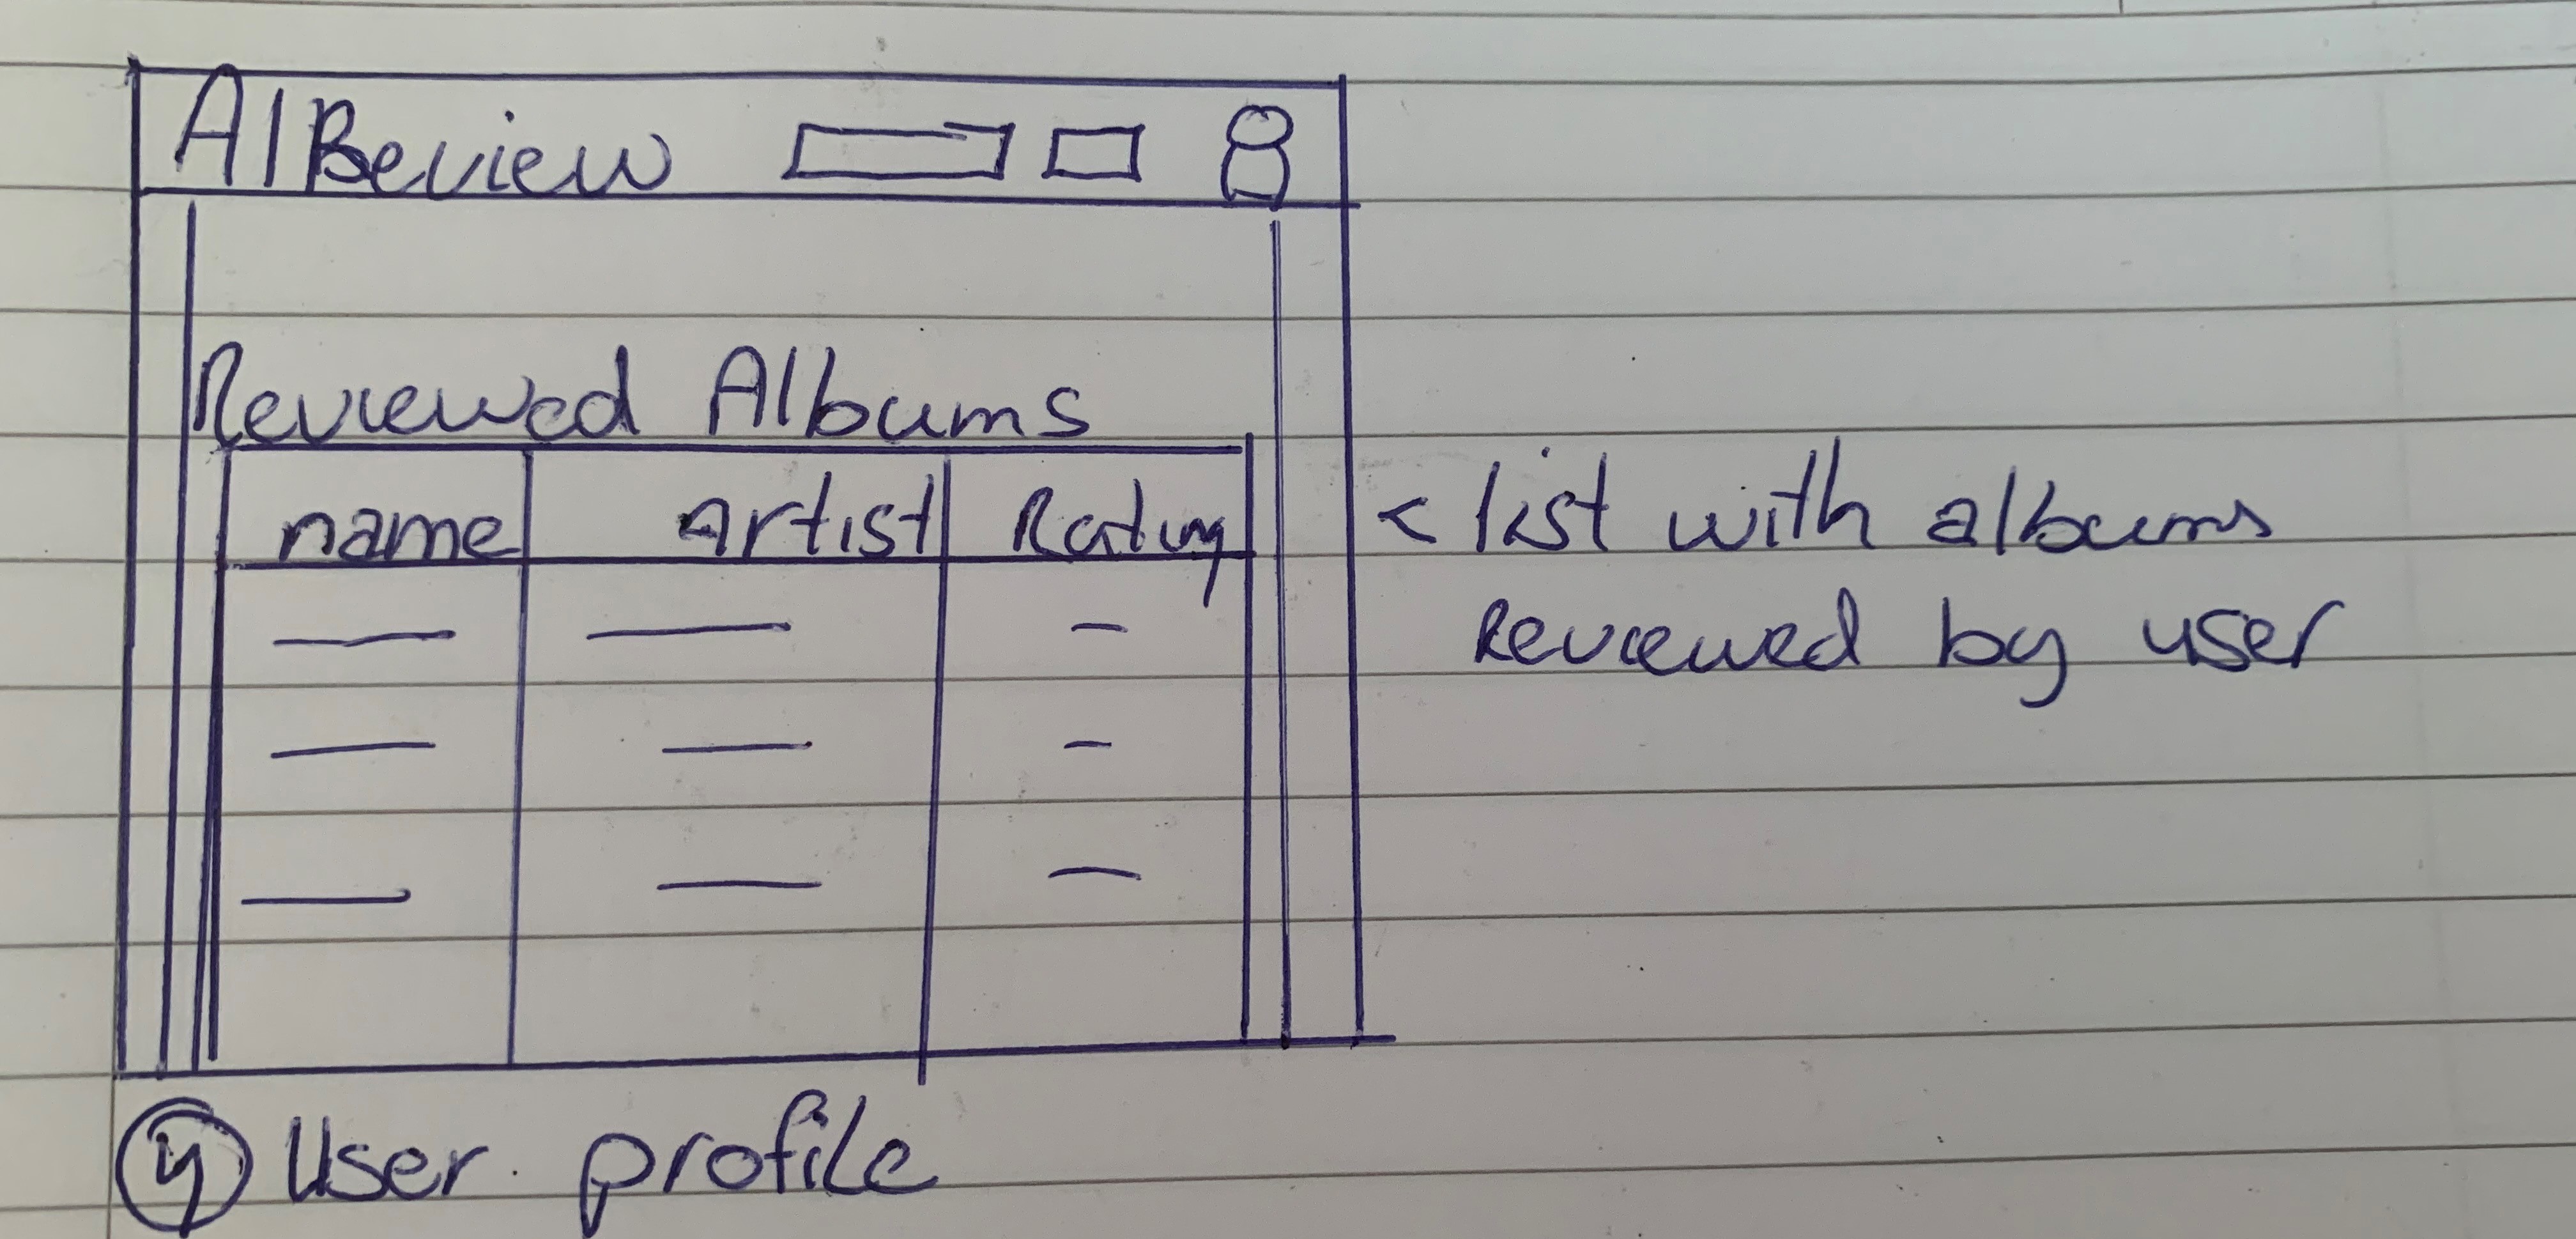 AlBeview
Reviewed Albums
name artist Rating
< list with albums
Reviewed by user
4 User profile